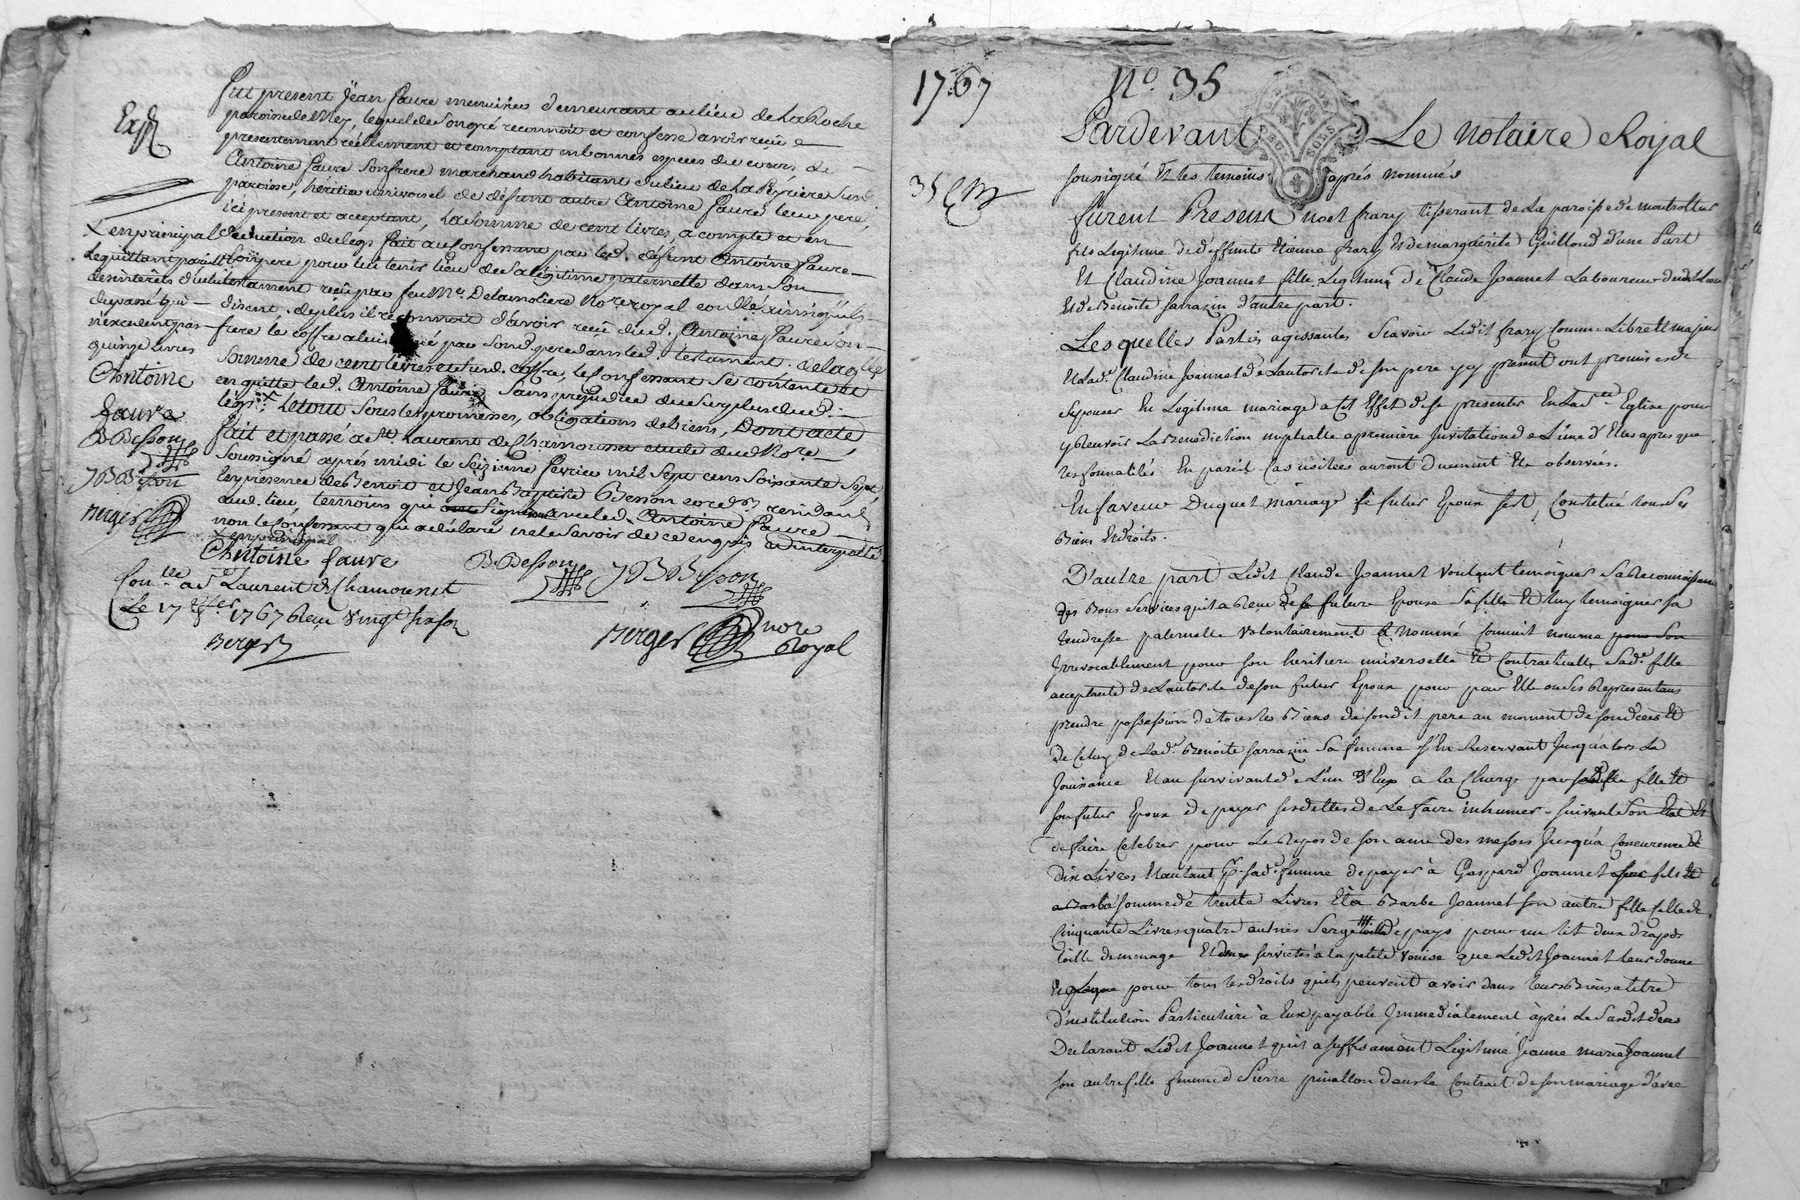 Fut présent Jean faure menuisier demeurant au lieu de La Roche
paroisse de Mey, lequel de son gré reconnoit et confesse avoir reçu
presentement réellement et comptant en bonnes especes du cours, de
Antoine faure son frere marchand habitant du lieu de La
paroisse, héritier universel de défunt autre Antoine faure leur pere,
ici present et acceptant, la somme de cent livres, a compte et en
déduction du legs fait au confessant par led. défunt Antoine faure
pere pour lui tenir lieu de sa légitime paternelle dans son
testament reçu par feu Me. Delamoliere Nore royal
disent. de plus il reconnoit d'avoir reçu dud. Antoine faure son
frere le coffre a lui par sond. pere dans led. testament. de laq.lle
somme de cent livres et sud. coffre, le confessant se contente et
en quitte led. Antoine faure, sans préjudice du surplus dud.
legs. le tout sous les promesses, obligations de biens, Dont acte
fait et passé a St. Laurent de Chamousset etude dud. Nore.
soussigné après midi le seizieme fevrier mil sept cens soixante sept,
en presence de Benoit et Jean Baptiste Besson residant
aud. lieu temoins qui ont signé avec led. Antoine faure
non le confessant qui a déclaré ne le savoir de ce enquis et interpellé
l'enprincipal
Antoine faure B. Besson JB Besson
Con.lle a St Laurent de Chamousset
Le 17 1767 Reçu vingt six sols
Berger
Berger nore
Royal
Expé
L'enprincipal
desinterets
du passé qui
n'excedent pas
quinze livres
Antoine
faure
B. Besson
JB Besson
Berger
1767 No. 35
Pardevant Le Notaire Royal
35
soussigné Et les temoins après nommés
furent Present Noel frary tisserant de La paroisse de montrottier
fils Legitime de deffunts Etienne frary Et de marguerite Guilloud d'une Part
Et Claudine Joannet fille Legitime de Claude Joannet Laboureur dudit Lieu
Et de Benoite Sarrazin d'autre part.
Lesquelles Parties agissantes Scavoir Ledit frary Comme Libre Et majeur
Et Lad.e Claudine Joannet de L'autorité de son pere y present ont promis de
s'epouser En Legitime mariage a cet Effet de se presenter En La Ste Eglise pour
y Recevoir La Benediction nuptialle a premiere Invitation de L'une d'Elles apres que
les formalités En pareil Cas usitées auront duement Eté observées.
En faveur Duquel mariage Le futur Epoux s'est Constitué tous ses
Biens Et droits.
D'autre part Ledit Claude Joannet voulant temoigner Sa Reconnoissance
des Bons services qu'il a Reçu de la future Epouse Sa fille Et luy temoigner sa
tendresse paternelle volontairement a nommé Comme il nomme pour Son
Irrevocablement pour son heritiere universelle Et Contractuelle Sad.e fille
acceptante de L'autorité de son futur Epoux pour par Elle ou Ses Representans
prendre possession de tous les Biens de sondit pere au moment de son deces Et
de Celuy de Lad.e Benoite Sarrazin Sa femme S'En Reservant Jusqu'alors La
Jouissance Et au survivant de L'un d'Eux a la Charge par sadite fille Et
son futur Epoux de payer ses dettes de Le faire inhumer suivant Son Etat Et
de faire Celebrer pour Le Repos de son ame des messes Jusqu'a Concurrence de
dix Livres Et autant pr. sad.e femme de payer à Gaspard Joannet son fils Et
a Barbe somme de trente Livres Et à Barbe Joannet son autre fille Celle de
Cinquante Livres quatre aulnes Serge de pays pour un lit deux draps de
toille de menage Et deux serviettes à la petite Venise que Ledit Joannet leur donne
Et Legue pour tous les droits qu'ils peuvent avoir dans leurs Biens a titre
d'institution Particuliere à Eux payable Immediatement après Le Susdit deces
Declarant Ledit Joannet qu'il a suffisament Legitimé Jeanne marie Joannet
son autre fille femme de Pierre pinallon dans Le Contrat de son mariage d'avec